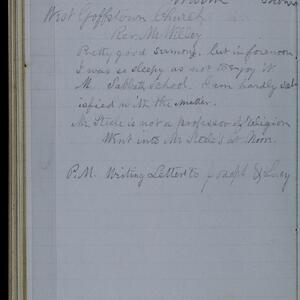 West Goffstown Church
Rev. Mr Willey
Pretty good sermons, but in forenoon
I was so sleepy as not to enjoy it
M. Sabbath School. Am hardly sat-
isfied with the matter.
Mr Steele is not a professor of religion
Went into Mr Steele's at Noon.
P.M. Writing Letter to Joseph & Lucy